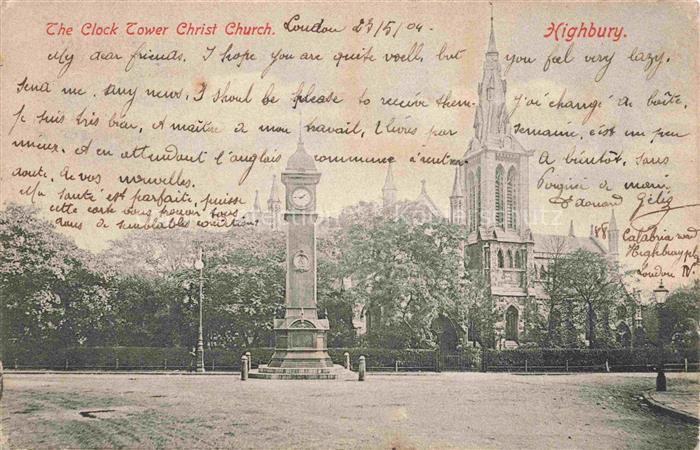 The Clock Tower Christ Church. London 23/5/04. Highbury.
My dear friends. I hope you are quite well, but you feel very lazy,
send me, any news, I shoul be please to receive them. J'ai changé de boîte,
je suis très bien, et maître de mon travail, livres par semaine, c'est un peu
mieux. et en attendant l'anglais commence à A bientôt, sans
doute, de vos nouvelles.
Ma santé est parfaite, puisse
cette carte vous trouver tous
dans de semblables conditions
Poignée de main
Edouard
Calabria road
Highbury pl
London N.